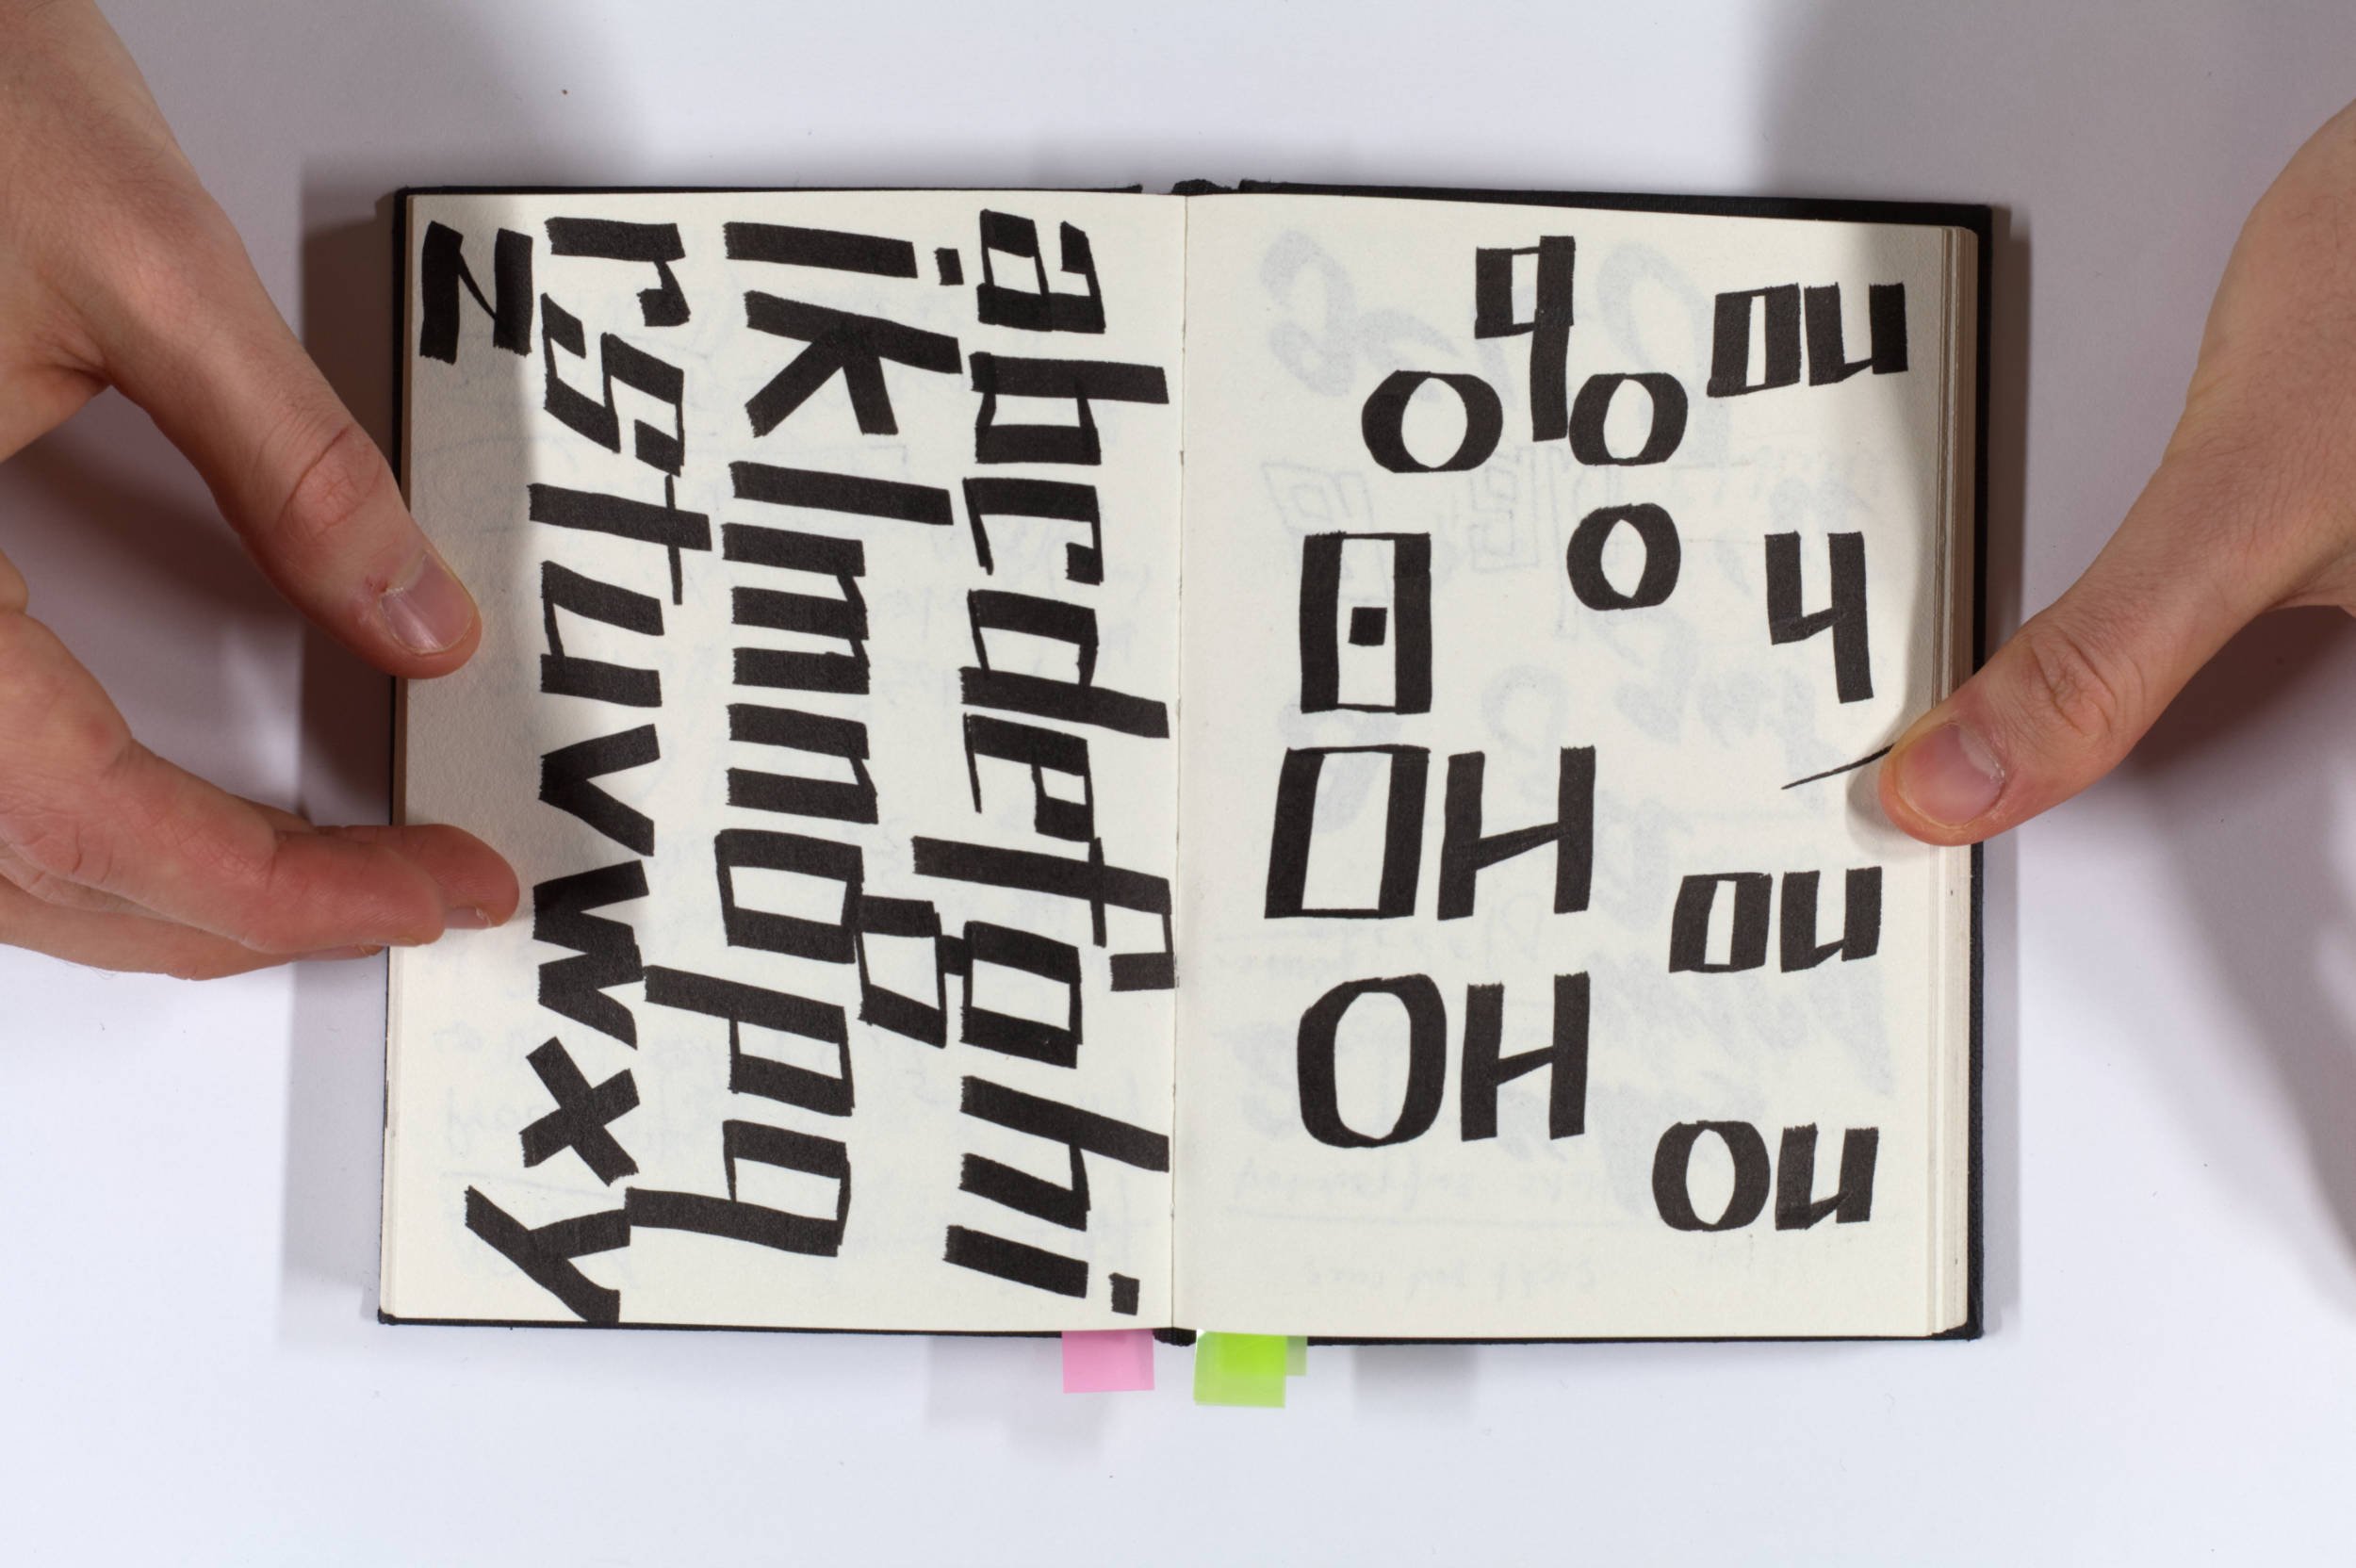 abcdefghi
iklmnopq
rstuvwxy
z
q ou
o o
o
OH
ou
OH
ou